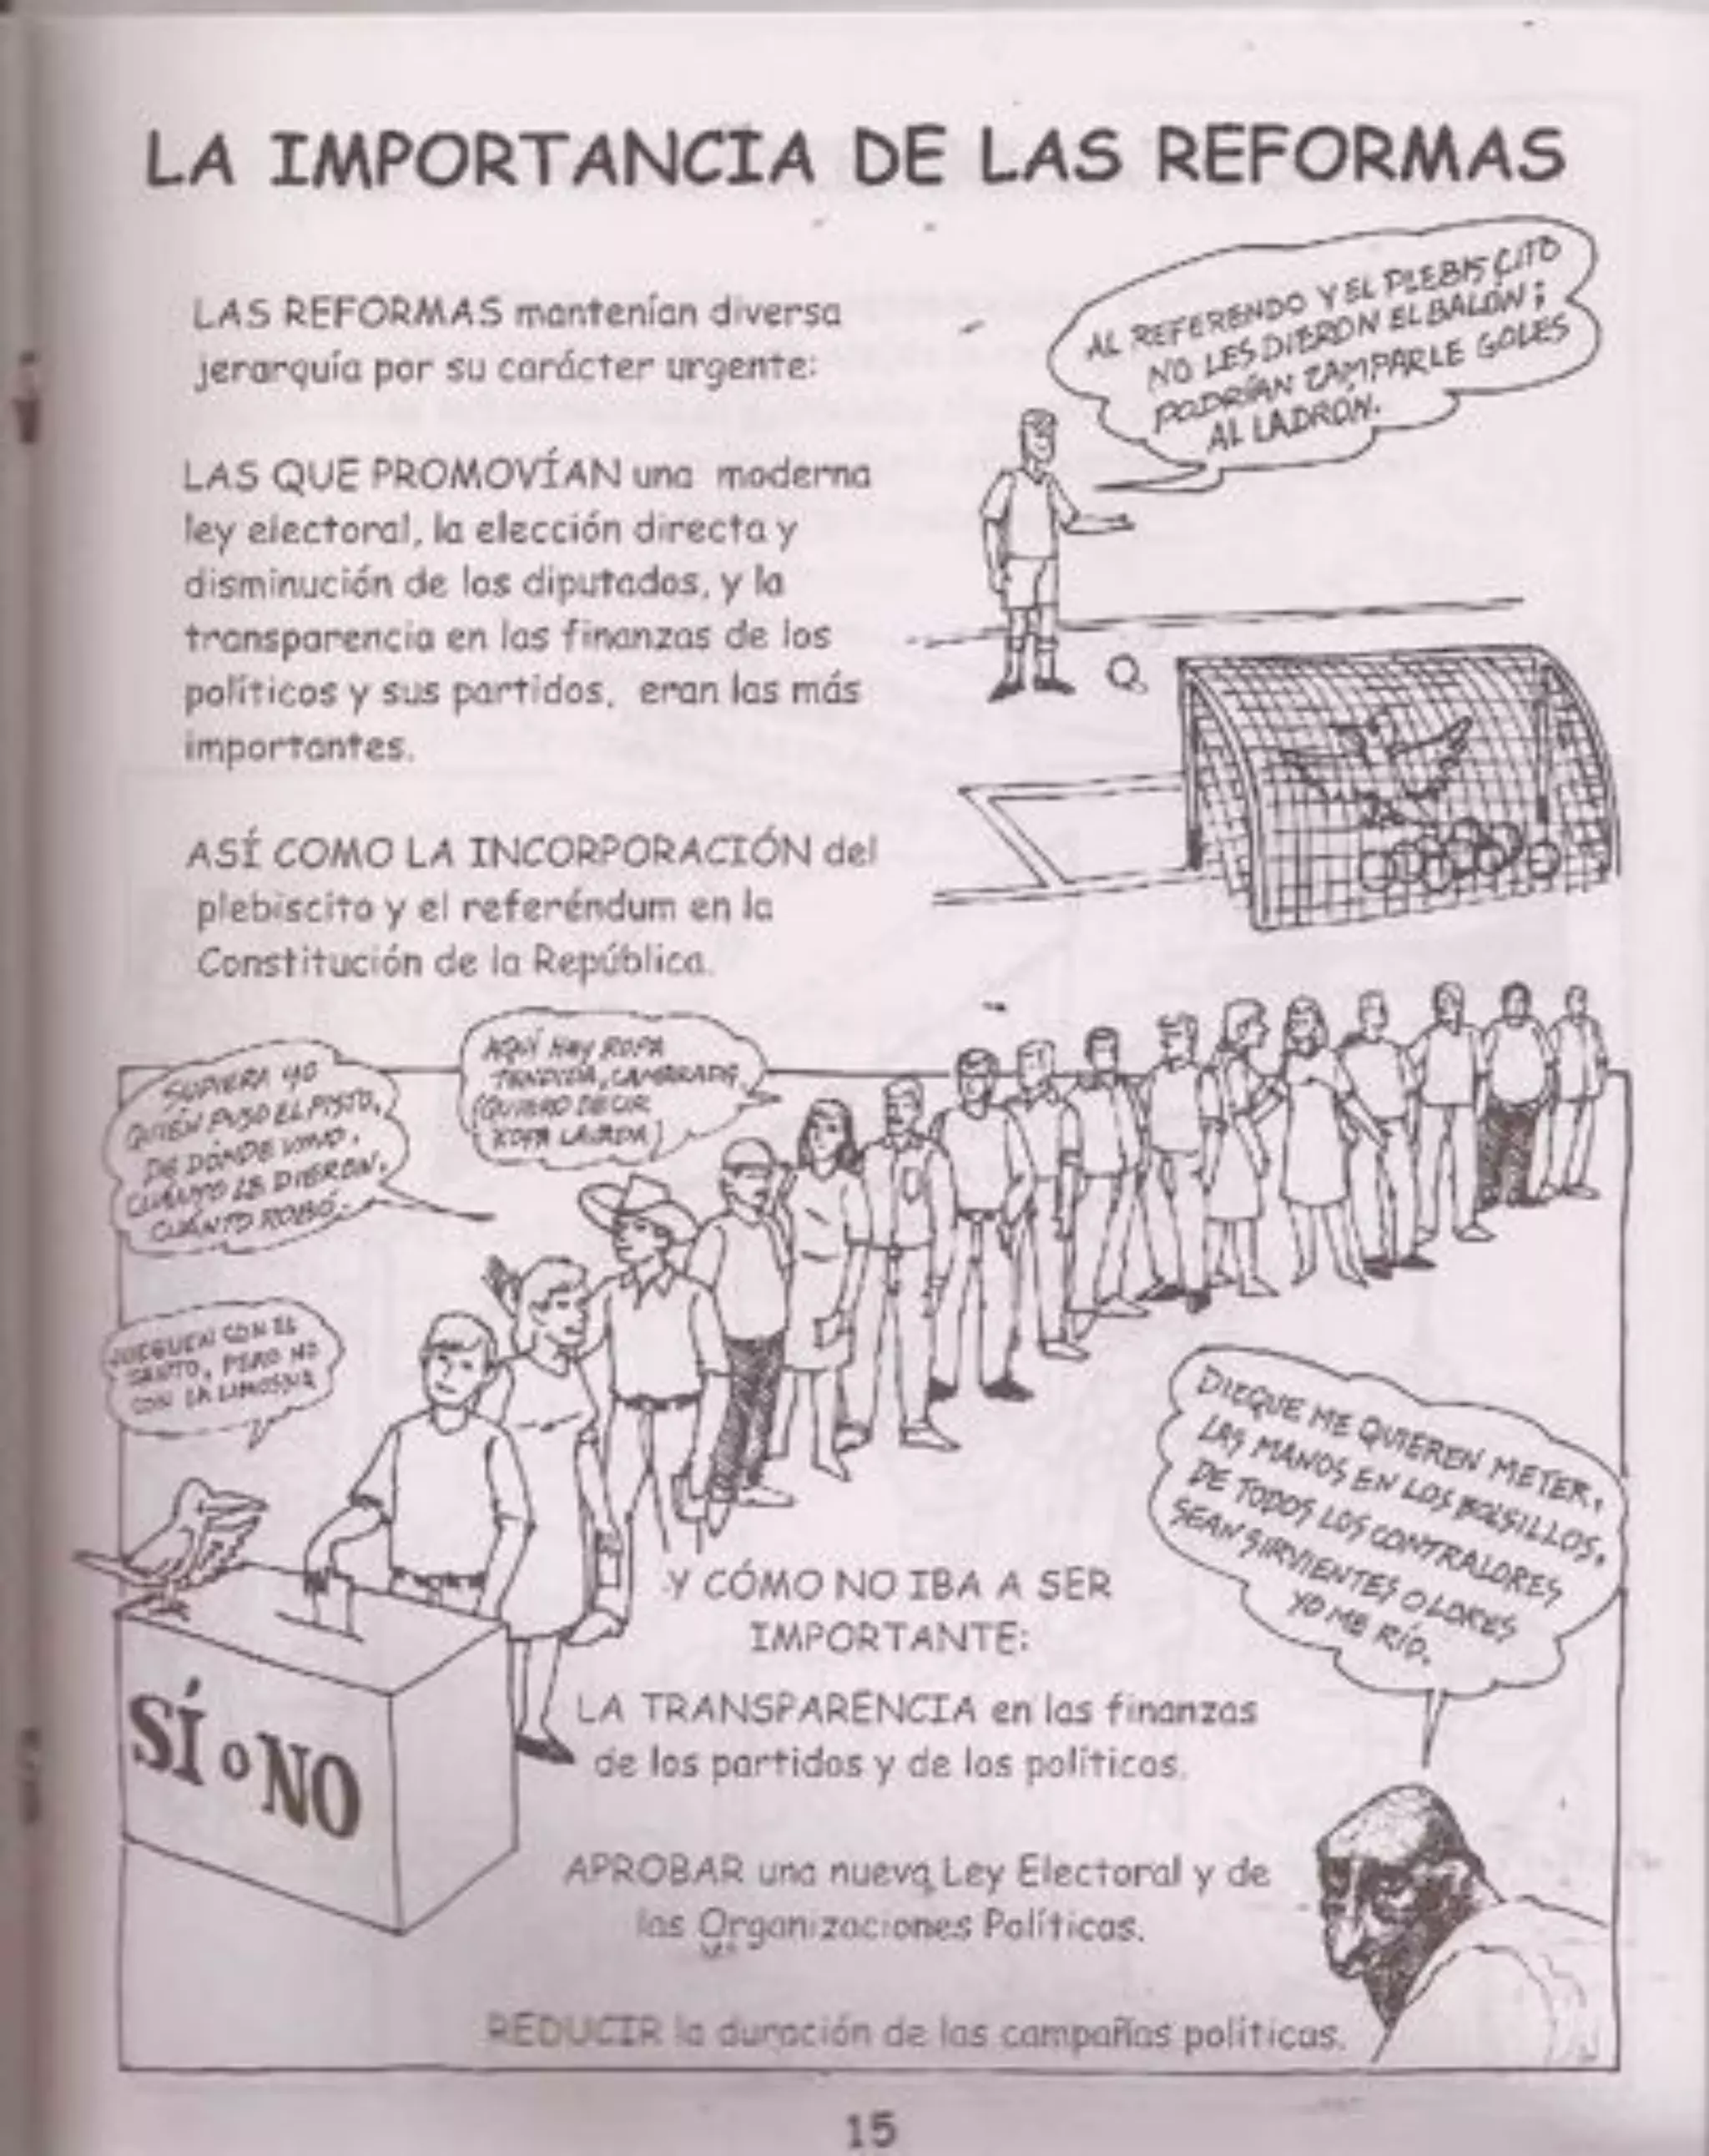 LA IMPORTANCIA DE LAS REFORMAS
LAS REFORMAS mantenían diversa
jerarquía por su carácter urgente:
AL REFERENDO Y EL PLEBISCITO
NO LES DIERON EL BALÓN;
PODRÍAN ZAMPARLE GOLES
AL LADRÓN.
LAS QUE PROMOVÍAN una moderna
ley electoral, la elección directa y
disminución de los diputados, y la
transparencia en las finanzas de los
políticos y sus partidos, eran las más
importantes.
ASÍ COMO LA INCORPORACIÓN del
plebiscito y el referéndum en la
Constitución de la República.
SUPIERA YO
QUIÉN PUSO EL PISTO,
DE DÓNDE VINO,
CUÁNTO LE DIERON,
CUÁNTO ROBÓ.
AQUÍ HAY ROPA
TENDIDA, CAMARADA
(QUIERO DECIR
ROPA LAVADA)
JUEGUEN CON EL
SANTO, PERO NO
CON LA LIMOSNA
DIZQUE ME QUIEREN METER,
LAS MANOS EN LOS BOLSILLOS,
DE TODOS LOS CONTRALORES
SEAN SIRVIENTES O LORES
YO ME RÍO.
SÍ o NO
Y CÓMO NO IBA A SER
IMPORTANTE:
LA TRANSPARENCIA en las finanzas
de los partidos y de los políticos.
APROBAR una nueva Ley Electoral y de
las Organizaciones Políticas.
REDUCIR la duración de las campañas políticas.
15